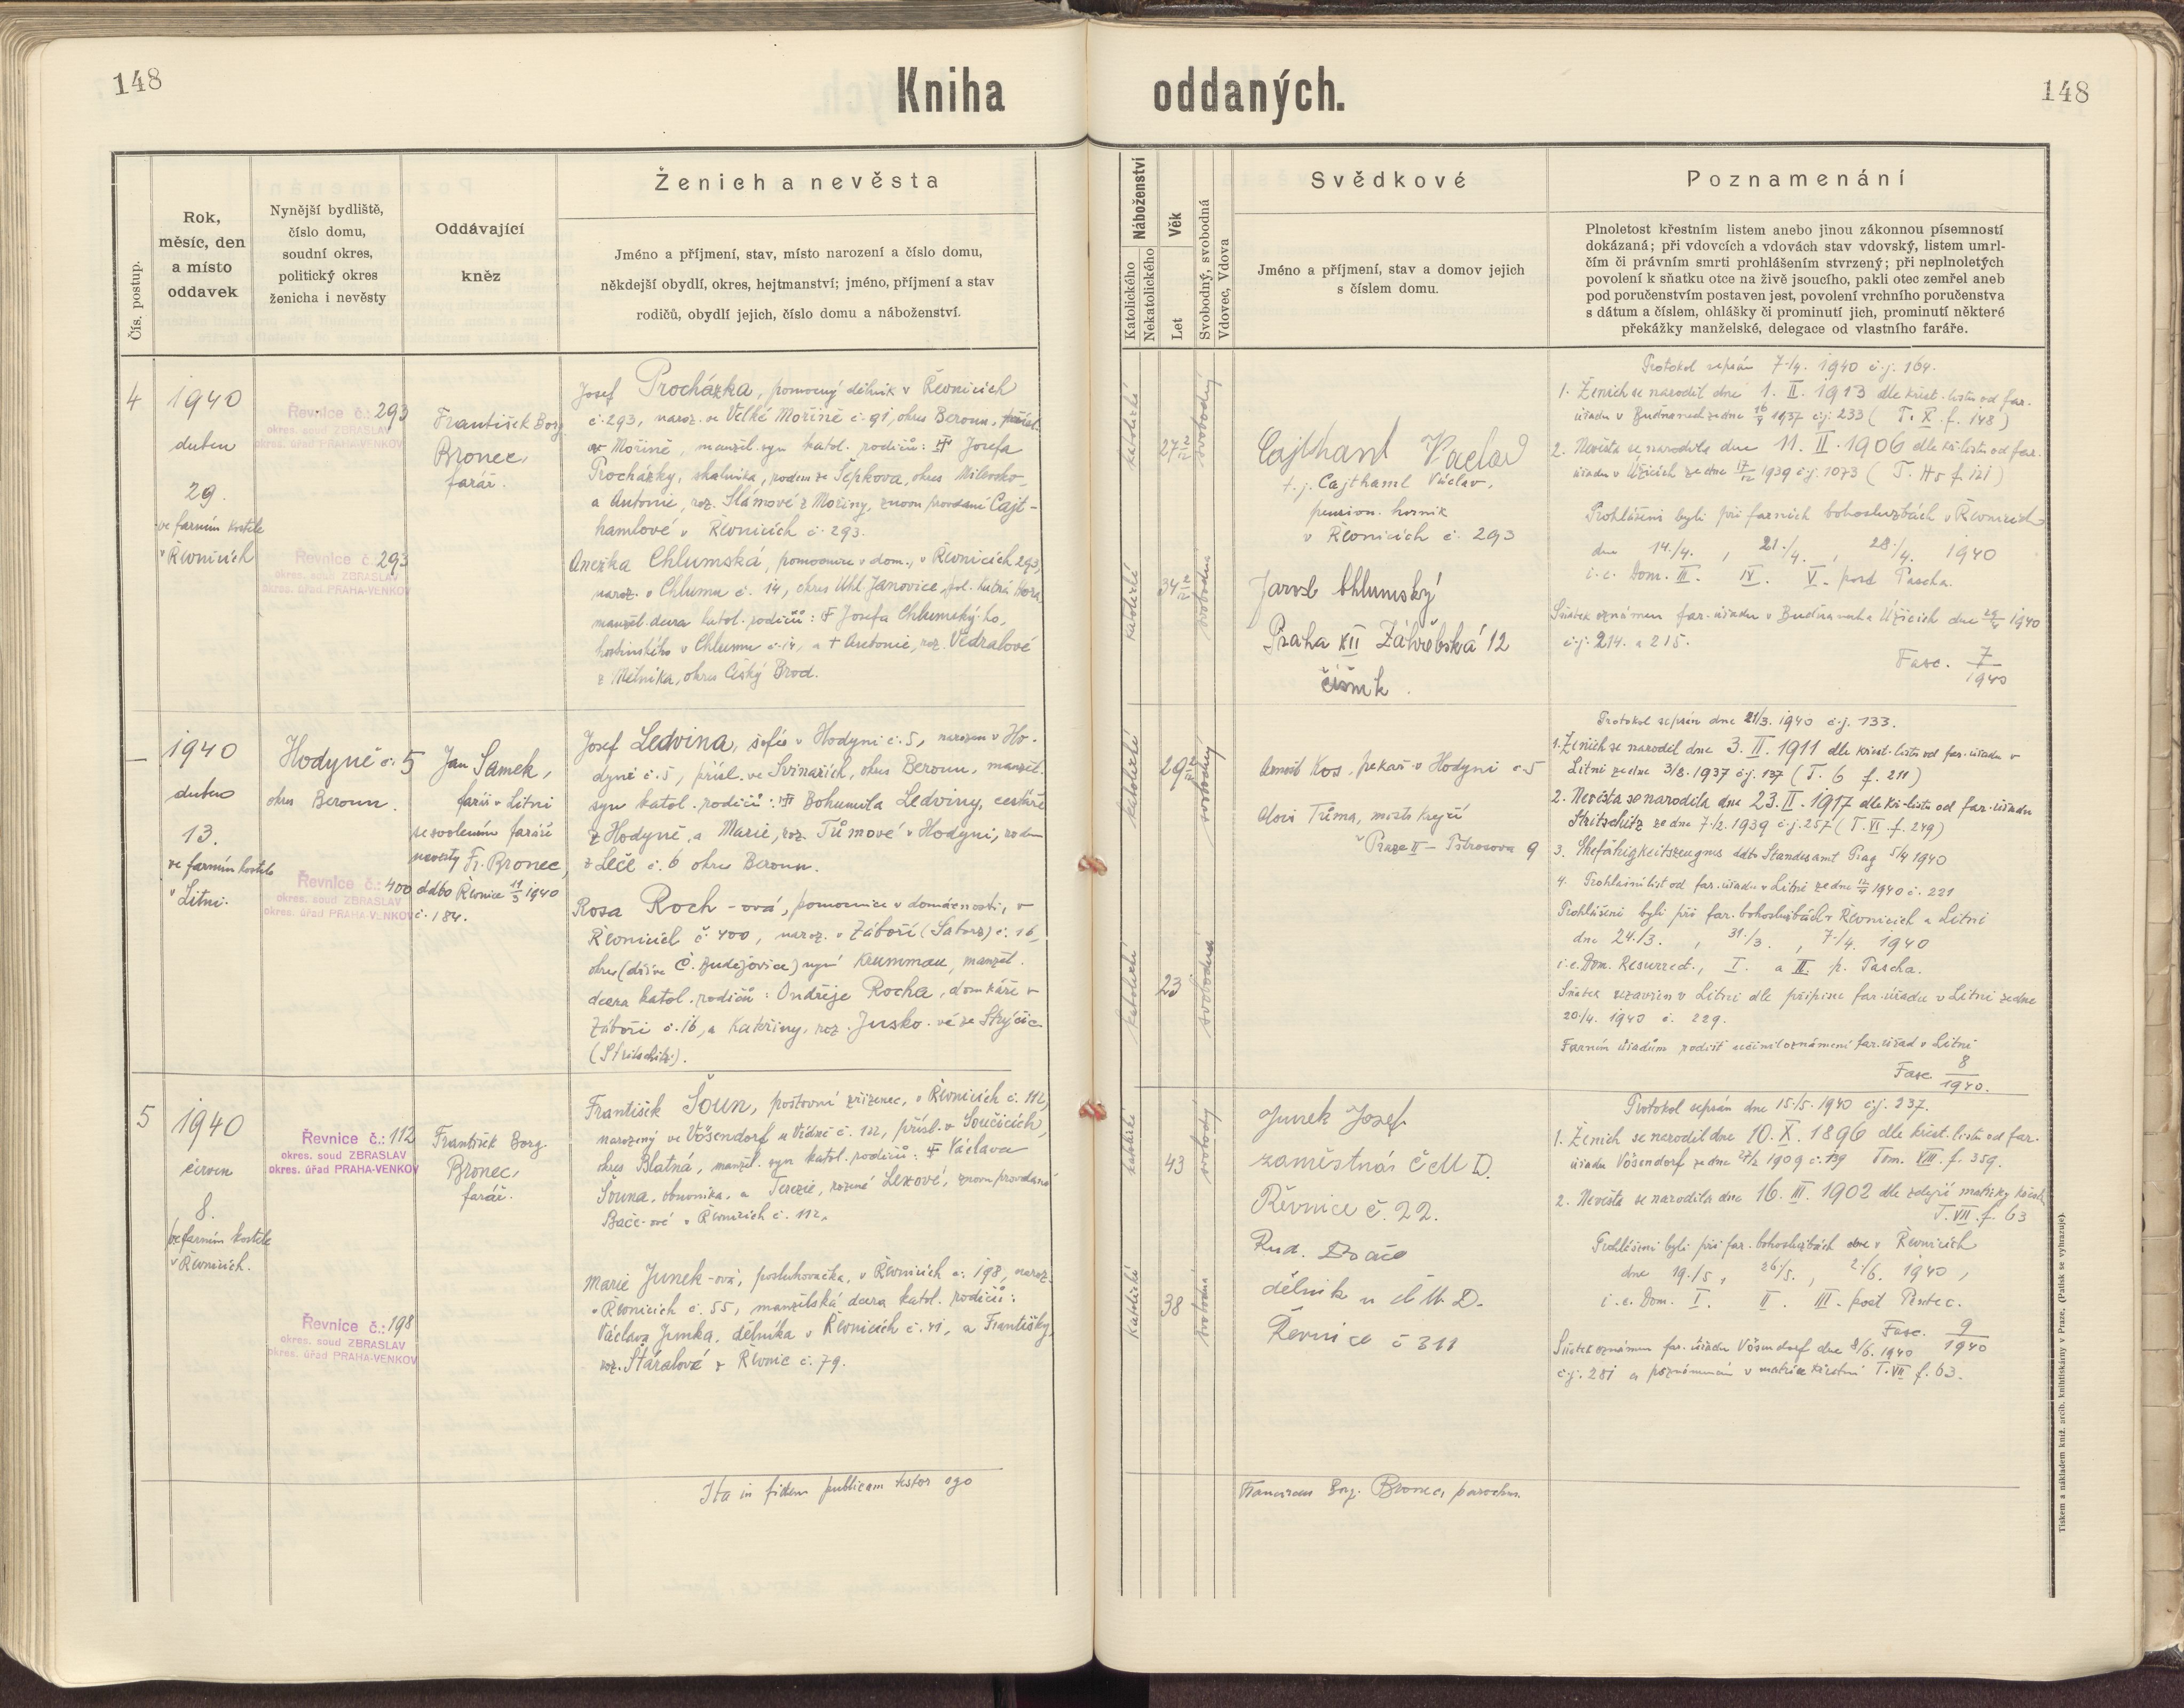 148
Kniha oddaných.
148
Čís. postup.
Rok,
měsíc, den
a místo
oddavek
Nynější bydliště,
číslo domu,
soudní okres,
politický okres
ženicha i nevěsty
Oddávající
kněz
Ženich a nevěsta
Jméno a příjmení, stav, místo narození a číslo domu,
někdejší obydlí, okres, hejtmanství; jméno, příjmení a stav
rodičů, obydlí jejich, číslo domu a náboženství.
Náboženství
Katolického
Nekatolického
Věk
Let
Svobodný, svobodná
Vdovec, Vdova
Svědkové
Jméno a příjmení, stav a domov jejich
s číslem domu.
Poznamenání
Plnoletost křestním listem anebo jinou zákonnou písemností
dokázaná; při vdovcích a vdovách stav vdovský, listem umrl-
čím či právním smrti prohlášením stvrzený; při neplnoletých
povolení k sňatku otce na živě jsoucího, pakli otec zemřel aneb
pod poručenstvím postaven jest, povolení vrchního poručenstva
s dátum a číslem, ohlášky či prominutí jich, prominutí některé
překážky manželské, delegace od vlastního faráře.
4
1940
duben
29.
ve farním kostele
v Řevnicích
Řevnice č.: 293
okres. soud ZBRASLAV
okres. úřad PRAHA-VENKOV
Řevnice č. 293
okres. soud ZBRASLAV
okres. úřad PRAHA-VENKOV
František Borg.
Bronec,
farář.
Josef Procházka, pomocný dělník v Řevnicích
č. 293, naroz. ve Velké Mořině č. 91, okres Beroun, přísl.
v Mořině, manžel. syn katol. rodičů: Josefa
Procházky, skalníka, rodem ze Šepkova, okres Milevsko,
a Antonie, roz. Slámové z Mořiny, znovu provdané Cajt-
hamlové v Řevnicích č. 293.
Anežka Chlumská, pomocnice v dom., v Řevnicích 293,
naroz. v Chlumu č. 14, okres Uhl. Janovice, pol. Kutná Hora,
manžel. dcera katol. rodičů: † Josefa Chlumský-ho,
hostinského v Chlumu č. 14, a † Antonie, roz. Vedralové
z Mělníka, okres Český Brod.
katolické
27 2/12
svobodný
katolické
34 2/12
svobodná
Cajthaml Václav
t. j. Cajthaml Václav,
pension. horník
v Řevnicích č. 293
Jarosl. Chlumský
Praha XII Záhřebská 12
číšník.
Protokol sepsán 7./4. 1940 č.j. 164.
1. Ženich se narodil dne 1. II. 1913 dle křest. listu od far.
úřadu v Budňanech ze dne 1937 č.j. 233 (T. X. f. 148)
2. Nevěsta se narodila dne 11. II. 1906 dle kř. listu od far.
úřadu v Úžicích ze dne 17/12 1939 č.j. 1073 (T. f. 121)
Prohlášeni byli při farních bohoslužbách v Řevnicích
dne 14./4., 21./4., 28./4. 1940
i. e. Dom. III. IV. V. post Pascha.
Sňatek oznámen far. úřadu v Budňanech a Úžicích dne 29/4 1940
č.j. 214. a 215.
Fasc. 7/1940
—
1940
duben
13.
ve farním kostele
v Litni.
Hodyně č. 5
okres Beroun.
Řevnice č.: 400
okres. soud ZBRASLAV
okres. úřad PRAHA-VENKOV
Jan Samek,
farář v Litni
se svolením faráře
nevěsty Fr. Bronec,
ddto Řevnice 1940
č. 184.
Josef Ledvina, šofér v Hodyni č. 5, narozen v Ho-
dyni č. 5, přísl. ve Svinařích, okres Beroun, manžel.
syn katol. rodičů: Bohumila Ledviny, cestáře
z Hodyně, a Marie, roz. Tůmové v Hodyni, rodem
z Leče č. 6 okres Beroun.
Rosa Roch-ová, pomocnice v domácnosti, v
Řevnicích č. 400, naroz. v Záboří (Saborz) č. 16,
okres (dříve Č. Budějovice) nyní Krummau, manžel.
dcera katol. rodičů: Ondřeje Rocha, domkáře v
Záboří č. 16, a Kateřiny, roz. Jusko-vé ze Strýčic
(Stritschitz).
katolické
29
svobodný
katolické
23
svobodná
Arnošt Kos, pekař v Hodyni č. 5
Alois Tůma, mistr krejčí
v Praze II – Pštrosova 9
Protokol sepsán dne 21/3. 1940 č.j. 133.
1. Ženich se narodil dne 3. II. 1911 dle křest. listu od far. úřadu v
Litni ze dne 3/8. 1937 č.j. 137 (T. 6 f. 211)
2. Nevěsta se narodila dne 23. II. 1917 dle kř. listu od far. úřadu
Stritschitz ze dne 7./2. 1939 č.j. 257 (T. VI. f. 249)
3. Ehefähigkeitszeugnis ddto Standesamt Prag 5/4 1940
4. Prohlášní list od far. úřadu v Litni ze dne 12/4 1940 č. 221
Prohlášeni byli při far. bohoslužbách v Řevnicích a Litni
dne 24./3., 31./3., 7./4. 1940
i. e. Dom. Resurrect., I. a II. p. Pascha.
Sňatek uzavřen v Litni dle přípisu far. úřadu v Litni ze dne
20./4. 1940 č. 229.
Farním úřadům rodišť učinil oznámení far. úřad v Litni
Fasc 8/1940.
5
1940
červen
8.
ve farním kostele
v Řevnicích.
Řevnice č.: 112
okres. soud ZBRASLAV
okres. úřad PRAHA-VENKOV
Řevnice č.: 198
okres. soud ZBRASLAV
okres. úřad PRAHA-VENKOV
František Borg.
Bronec,
farář.
František Šoun, poštovní zřízenec, v Řevnicích č. 112,
narozený ve Vösendorf u Vídně č. 122, přísl. v Součicích,
okres Blatná, manžel. syn katol. rodičů: Václava
Šouna, obuvníka, a Terezie, rozené Lexové, znovu provdané
Bače-ové v Řevnicích č. 112.
Marie Junek-ová, posluhovačka, v Řevnicích č. 198, naroz.
v Řevnicích č. 55, manželská dcera katol. rodičů:
Václava Junka, dělníka v Řevnicích č. 41, a Františky,
roz. Stáralové z Řevnic č. 79.
katolické
43
svobodný
Katolické
38
svobodná
Junek Josef
zaměstnás ČMD.
Řevnice č. 22.
Rud. Bače
dělník u čMD.
Řevnice č 311
Protokol sepsán dne 15./5. 1940 č.j. 237.
1. Ženich se narodil dne 10. X. 1896 dle křest. listu od far.
úřadu Vösendorf ze dne 27/2 1909 č. 139 Tom. VIII. f. 359.
2. Nevěsta se narodila dne 16. III. 1902 dle zdejší matriky křestní
T. VII. f. 63
Prohlášeni byli při far. bohoslužbách v Řevnicích
dne 19./5., 26./5., 2./6. 1940,
i. e. Dom. I. II. III. post Pentec.
Fasc. 9/1940
Sňatek oznámen far. úřadu Vösendorf dne 8/6. 1940
č.j. 281 a poznamenán v matrice křestní T. VII f. 63.
Ita in fidem publicam testor ego
Franciscus Borg. Bronec, parochus.
Tiskem a nákladem kníž. arcib. knihtiskárny v Praze. (Patisk se vyhrazuje).